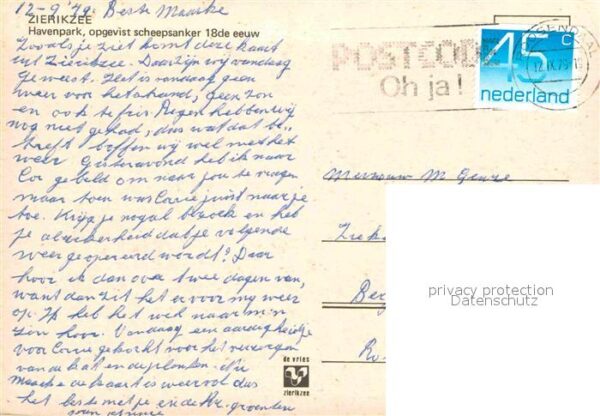 12-9-'79. Beste Maaike
ZIERIKZEE
Havenpark, opgevist scheepsanker 18de eeuw
Zooals je ziet komt deze kaart
uit Zierikzee. Daar zijn wij vandaag
geweest. Het is vandaag geen
weer voor het strand, geen zon
en ook te fris. Regen hebben wij
nog niet gehad, dus wat dat be-
treft boffen wij wel met het
weer. Gisteravond heb ik naar
Cor gebeld om naar jou te vragen
maar toen was Corrie juist naar je
toe. Krijg je nogal bezoek en heb
je al zekerheid dat je volgende
week geopereerd wordt? Daar
hoor ik dan over twee dagen van,
want dan zit het er voor mij weer
op. Ik heb het wel naar m'n
zin hoor. Vandaag een aardigheidje
voor Corrie gekocht voor het verzorgen
van de kat en de planten. Nu
Maaike de kaart is weer vol dus
het beste met je en de hr. groeten
van
POSTCODE
Oh ja!
12.IX.79
45 c
nederland
Mevrouw M
Zie
Be
Ro
de vries
zierikzee
privacy protection
Datenschutz